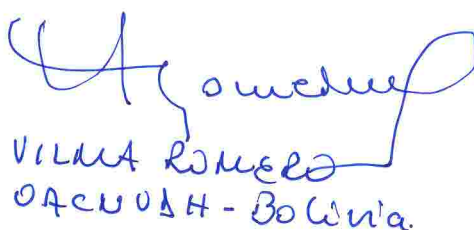 VILMA ROMERO
OACNUDH - Bolivia.